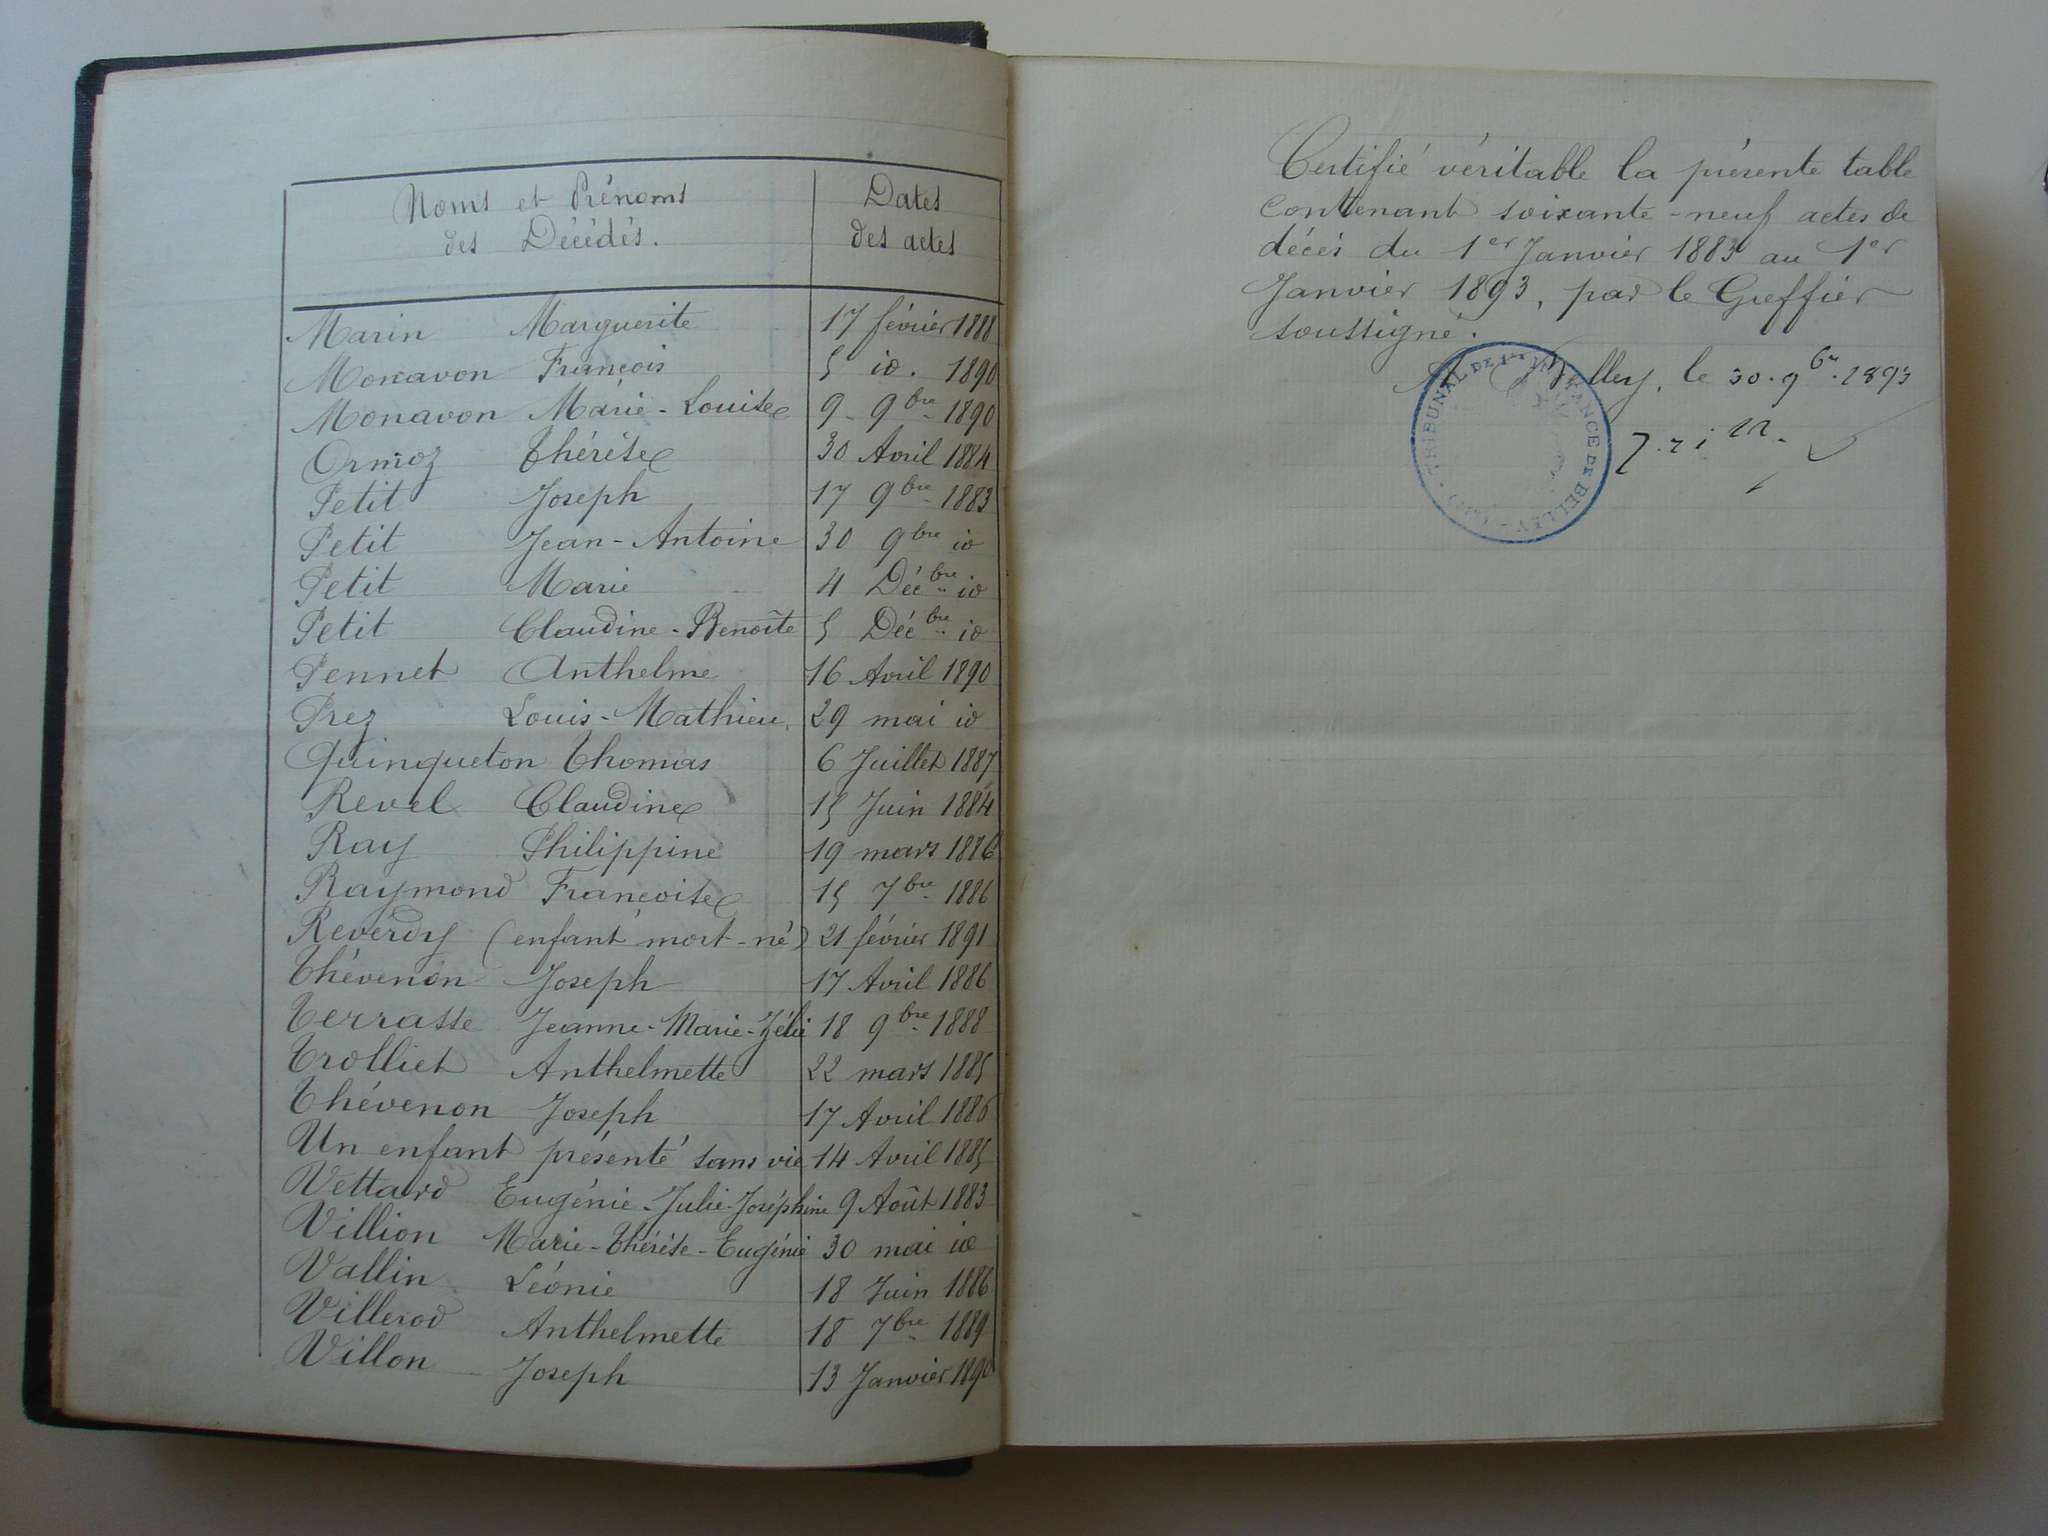 Noms et Prénoms
des Décédés.
Dates
des actes
Marin Marguerite 17 février 1888
Monavon François 5 id. 1890
Monavon Marie-Louise 9 9bre 1890
Ormoz Thérèse 30 Avril 1884
Petit Joseph 17 9bre 1883
Petit Jean-Antoine 30 9bre id
Petit Marie 4 Décbre id
Petit Claudine-Benoîte 5 Décbre id
Pennet Anthelme 16 Avril 1890
Prez Louis-Mathieu 29 mai id
Quinqueton Thomas 6 Juillet 1887
Revel Claudine 15 Juin 1884
Ray Philippine 19 mars 1886
Raymond Françoise 15 7bre 1886
Reverdy (enfant mort-né) 21 février 1891
Thévenon Joseph 17 Avril 1886
Terrasse Jeanne-Marie-Zélie 18 9bre 1888
Trolliet Anthelmette 22 mars 1885
Thévenon Joseph 17 Avril 1886
Un enfant présenté sans vie 14 Avril 1885
Vettard Eugénie-Julie-Joséphine 9 Août 1883
Villion Marie-Thérèse-Eugénie 30 mai id
Vallin Léonie 18 Juin 1886
Villerod Anthelmette 18 7bre 1889
Villon Joseph 13 Janvier 1890
Certifié véritable la présente table
contenant soixante-neuf actes de
décès du 1er Janvier 1883 au 1er
Janvier 1893, par le Greffier
soussigné.
Belley, le 30. 9bre. 1893
TRIBUNAL DE 1ère INSTANCE DE BELLEY